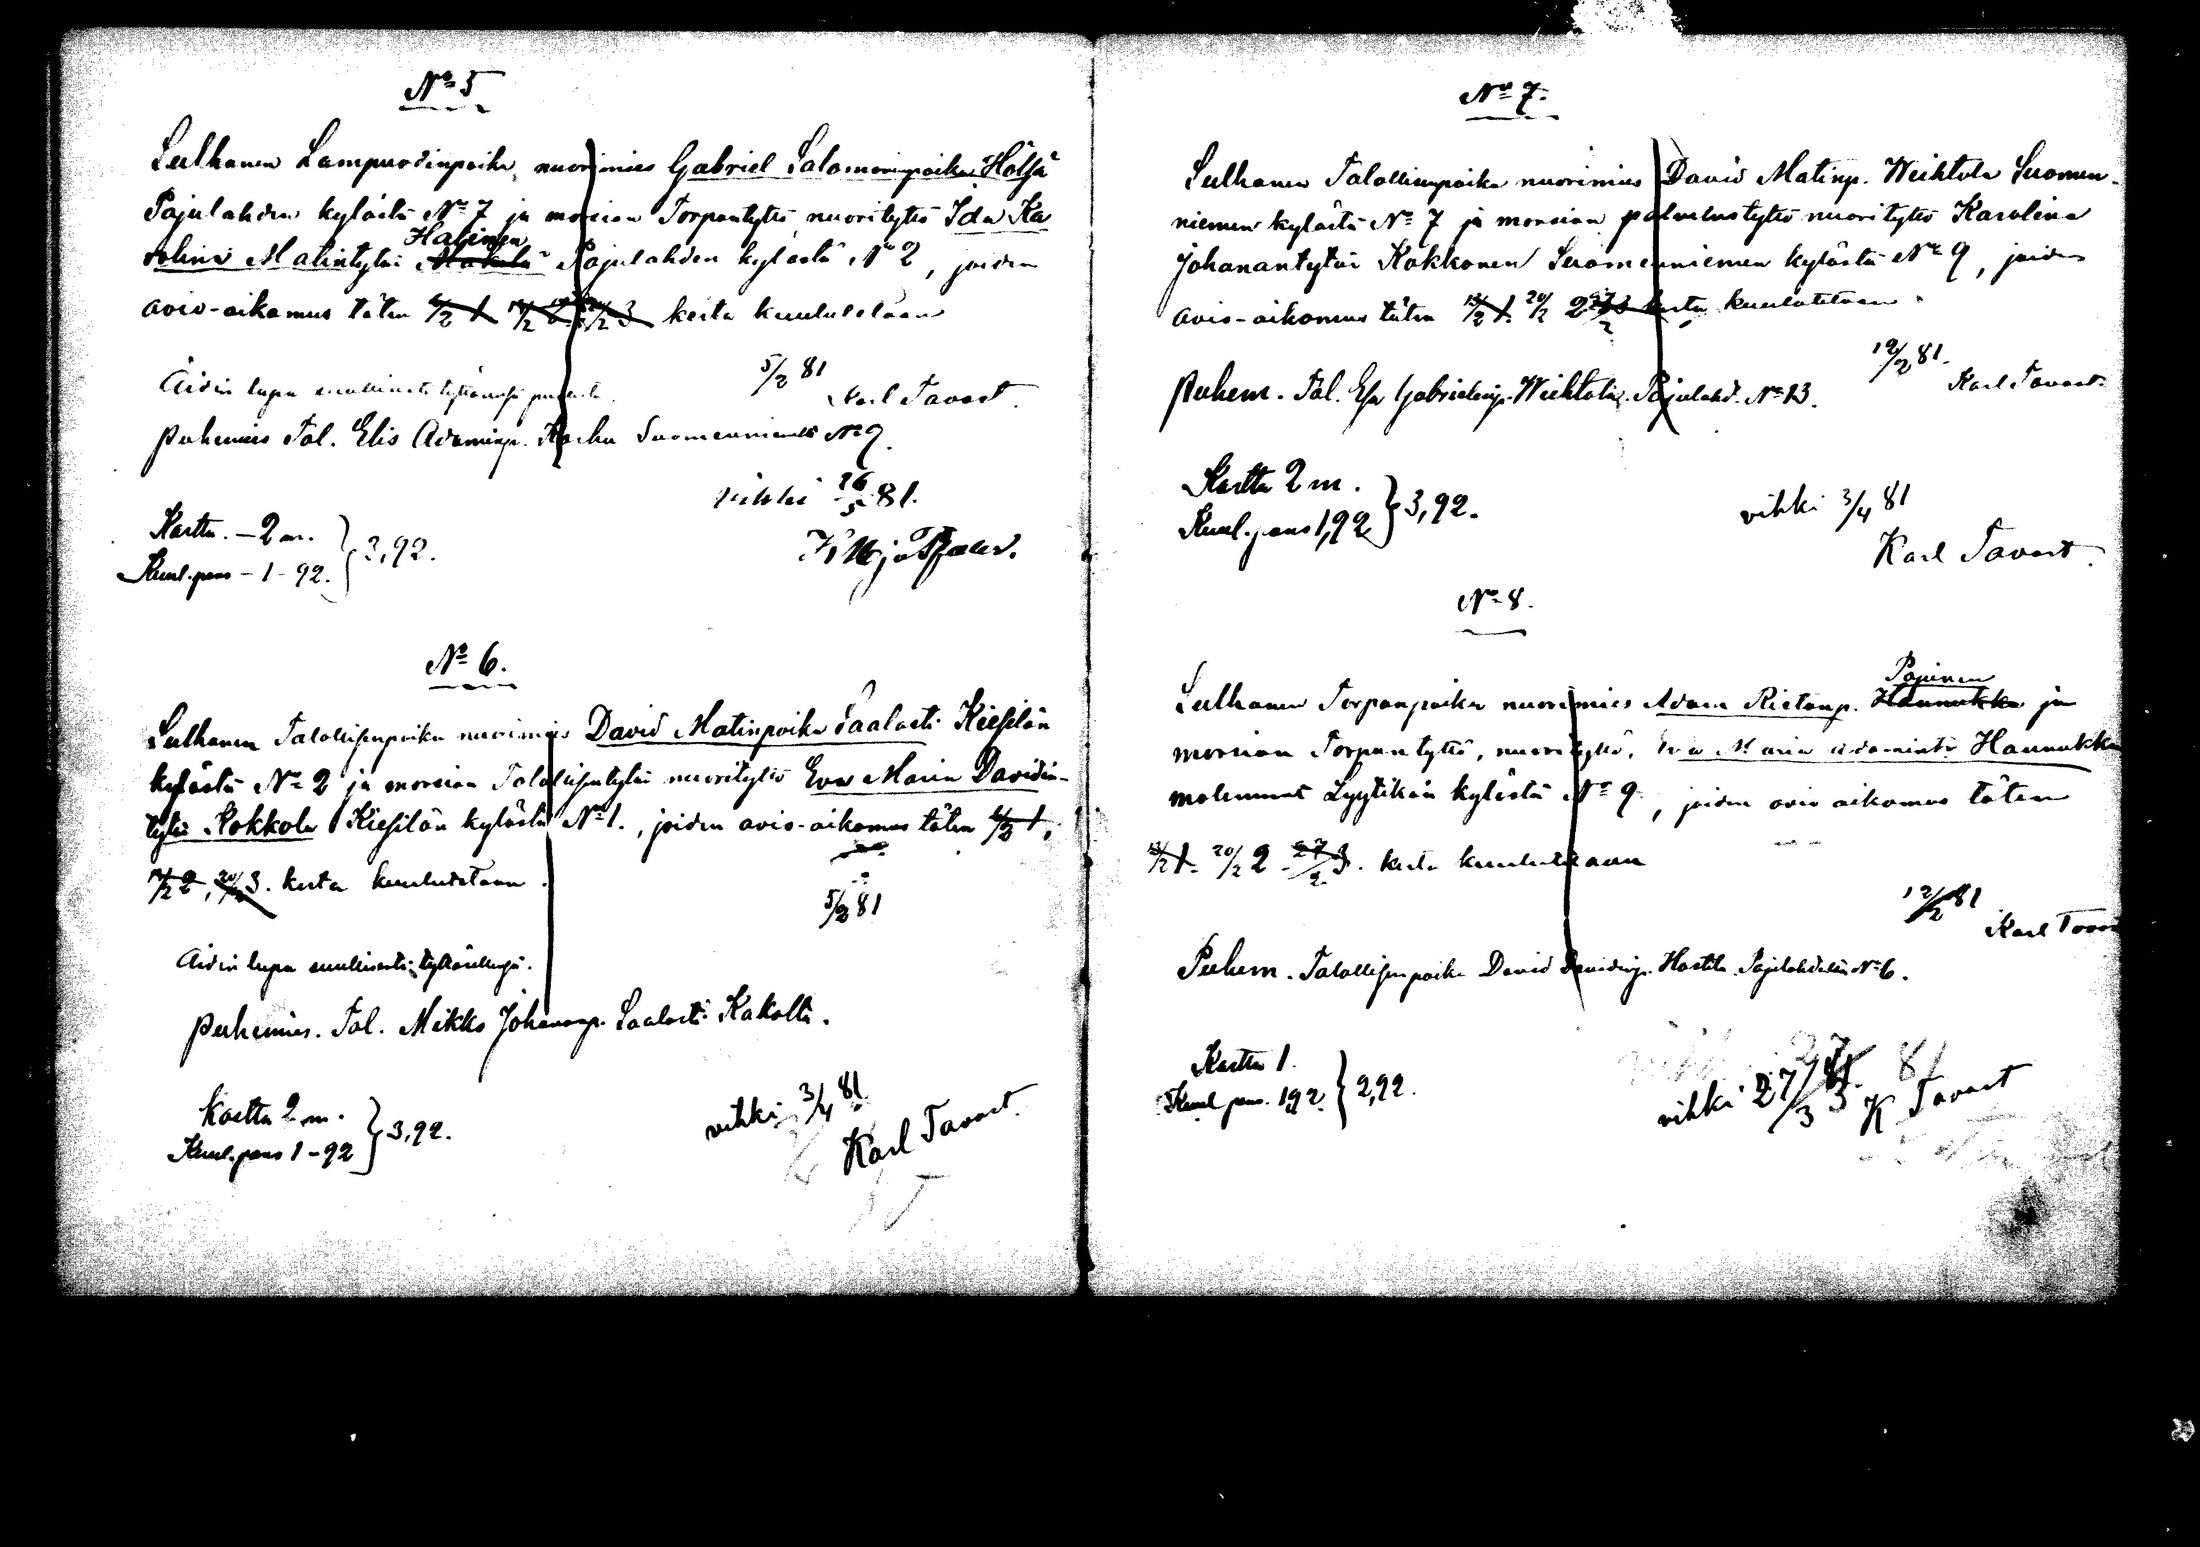 No 5
Sulhanen Lampuodinpoika, nuorimies Gabriel Salomoninpoika Hölsä
Pajulahden kylästä No 7 ja morsian Torpantyttö, nuorityttö Ida Ka
rolina Matintytär Halinen Pajulahden kylästä No 2, joiden
avio-aikomus täten 6/2 1 13/2 2 20/2 3 kerta kuulutetaan
5/2 81
Äidin lupa suullisesti
Karl Tavast.
puhemies Tal. Elis Adaminp. Karhu Suomenniemeltä No 9.
vihki 26/5 81.
Kartta. - 2 m.
Kuul. pans - 1 - 92. } 3,92.
No 6.
Sulhanen Talollisenpoika nuorimies David Matinpoika Saalasti Kiesilän
kylästä No 2 ja morsian Talollisentytär nuorityttö Eva Maria Davidin-
tytär Kokkola Kiesilän kylästä No 1., joiden avio-aikomus täten 6/2 1,
13/2 2, 20/2 3. kerta kuulutetaan.
5/2 81
Äidin lupa suullisesti tyttärellensä.
puhemies. Tal. Mikko Johananp. Saalasti Kakolta.
Kartta 2 m.
Kuul. pans 1 - 92 } 3,92.
vihki 3/4 81.
Karl Tavast.
No 7.
Sulhanen Talollisenpoika nuorimies David Matinp. Weihtola Suomen-
niemen kylästä No 7 ja morsian palvelustyttö nuorityttö Karolina
Johanantytär Kokkonen Suomenniemen kylästä No 9, joiden
avio-aikomus täten 13/2 1. 20/2 2 27/2 3 kerta kuulutetaan.
12/2 81.
Karl Tavast.
Puhem. Tal. Esa Gabrielinp. Weihtola. Pajulahd. No 13.
Kartta 2 m.
Kuul. pans 1,92 } 3,92.
vihki 3/4 81
Karl Tavast.
No 8.
Sulhanen Torpanpoika nuorimies Adam Ristonp. Hannukka Papinen ja
morsian Torpantyttö, nuorityttö, Eva Maria Adamint. Hannukka
molemmat Lyytikän kylästä No 9, joiden avio aikomus täten
13/2 1. 20/2 2 27/2 3. kerta kuulutetaan
12/2 81
Karl Tavast
Puhem. Talollisenpoika David Davidinp. Hasti­la Pajulahdelta No 6.
Kartta 1.
Kuul. pans. 1,92. } 2,92.
vihki 27/3 81
K Tavast